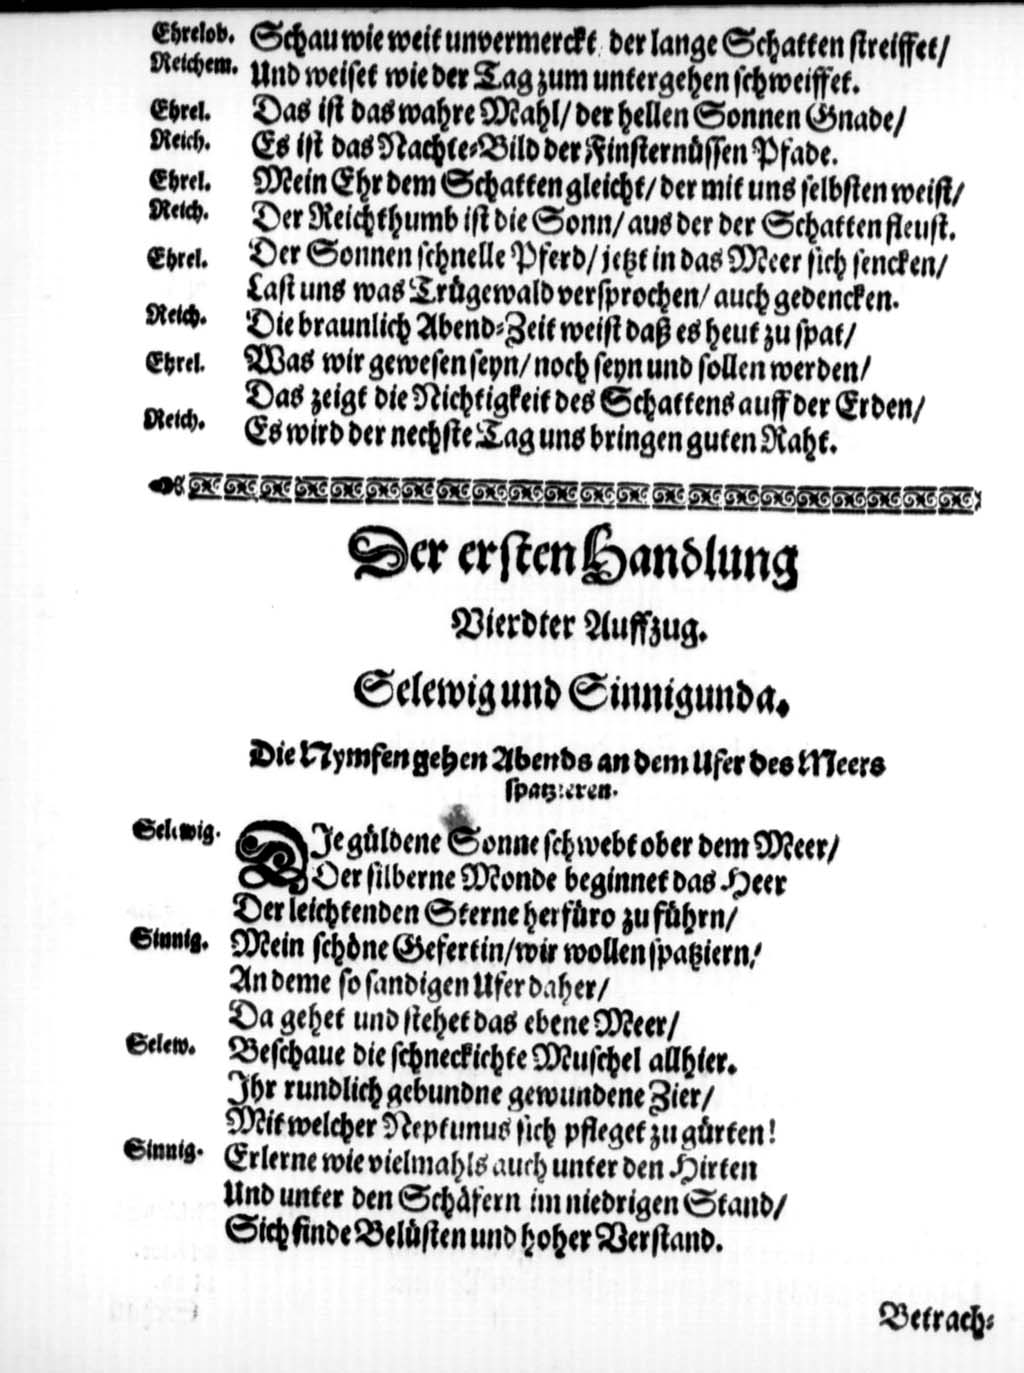 Ehrelob. Schau wie weit unvermerckt der lange Schatten streiffet/
Reichem. Und weiset wie der Tag zum untergehen schweiffet.
Ehrel. Das ist das wahre Mahl/ der hellen Sonnen Gnade/
Reich. Es ist das Nachte-Bild der Finsternüssen Pfade.
Ehrel. Mein Ehr dem Schatten gleicht/ der mit uns selbsten weist/
Reich. Der Reichthumb ist die Sonn/ aus der der Schatten fleust.
Ehrel. Der Sonnen schnelle Pferd/ jetzt in das Meer sich sencken/
Last uns was Trügewald versprochen/ auch gedencken.
Reich. Die braunlich Abend-Zeit weist daß es heut zu spat/
Ehrel. Was wir gewesen seyn/ noch seyn und sollen werden/
Das zeigt die Nichtigkeit des Schattens auff der Erden/
Reich. Es wird der nechste Tag uns bringen guten Raht.
Der ersten Handlung
Vierdter Auffzug.
Selewig und Sinnigunda.
Die Nymfen gehen Abends an dem Ufer des Meers
spatzieren.
Selewig. DJe güldene Sonne schwebt ober dem Meer/
Der silberne Monde beginnet das Heer
Der leichtenden Sterne herfüro zu führn/
Sinnig. Mein schöne Gefertin/ wir wollen spatziern/
An deme so sandigen Ufer daher/
Da gehet und stehet das ebene Meer/
Selew. Beschaue die schneckichte Muschel allhier.
Jhr rundlich gebundne gewundene Zier/
Mit welcher Neptunus sich pfleget zu gürten!
Sinnig. Erlerne wie vielmahls auch unter den Hirten
Und unter den Schäfern im niedrigen Stand/
Sich finde Belüsten und hoher Verstand.
Betrach-